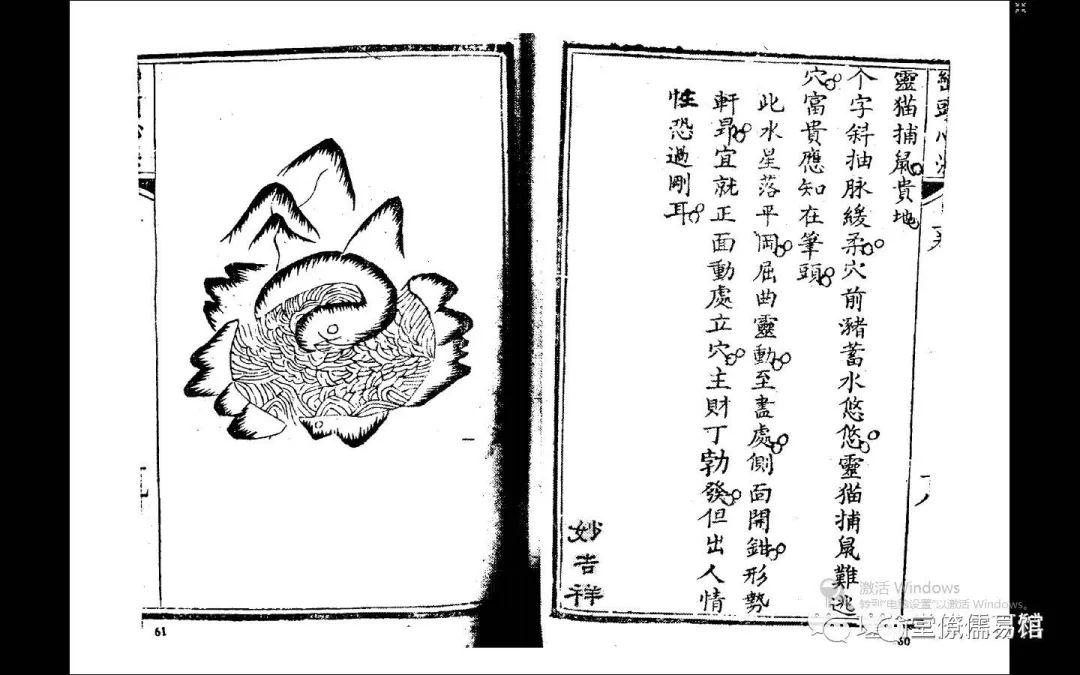 靈猫捕鼠貴地
个字斜抽脉緩柔穴前瀦蓄水悠悠靈猫捕鼠難逃
穴富貴應知在筆頭
此水星落平岡屈曲靈動至盡處側面開鉗形勢
軒昻宜就正面動處立穴主財丁勃發但出人情
性恐過剛耳
妙吉祥
61
60
激活 Windows
转到"电脑设置"以激活 Windows。
堂僚儒易馆